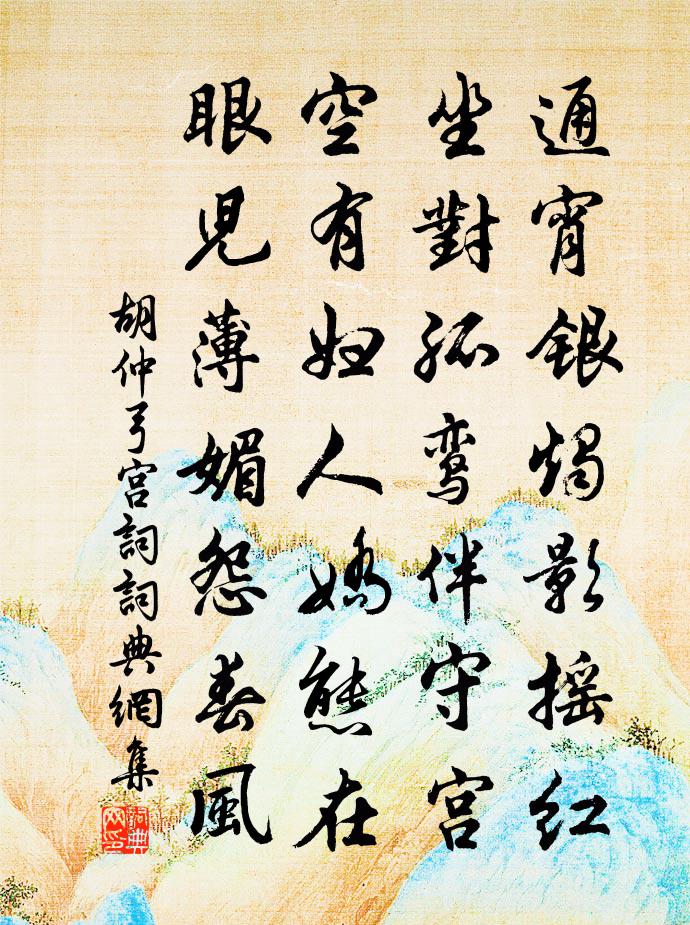 通宵銀燭影摇红
坐對孤鸾伴守宫
空有妇人嬌態在
眼児薄媚怨春風
胡仲弓宫詞詞典網集
詞典
网印